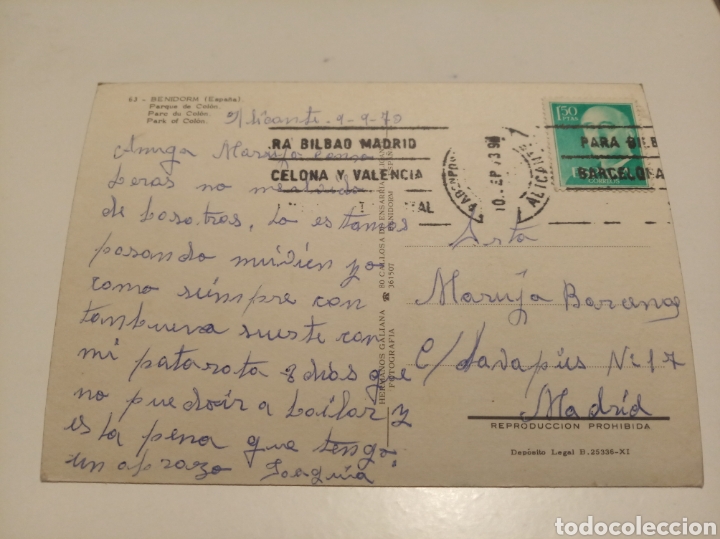 63 - BENIDORM (España)
Parque de Colón.
Parc du Colón.
Park of Colón.
Alicante 9-9-73
Amiga Maruja Como
beras no me olvido
de bosotros, lo estamos
pasando mui bien yo
como siempre con
tan buena suerte con
mi pata rota 8 dias que
no puedo ir a bailar y
es la pena que tengo
un abrazo Joaquina
RA BILBAO MADRID
CELONA Y VALENCIA
AL
10. SEP 73
ALICANTE
PARA BILB
BARCELONA
1'50
PTAS
CORREOS
HERMANOS GALIANA
FOTOGRAFIA
361507
Srta
Maruja
C/ Lavapies Nº 17
Madrid
REPRODUCCION PROHIBIDA
Depósito Legal B. 25336-XI
todocoleccion